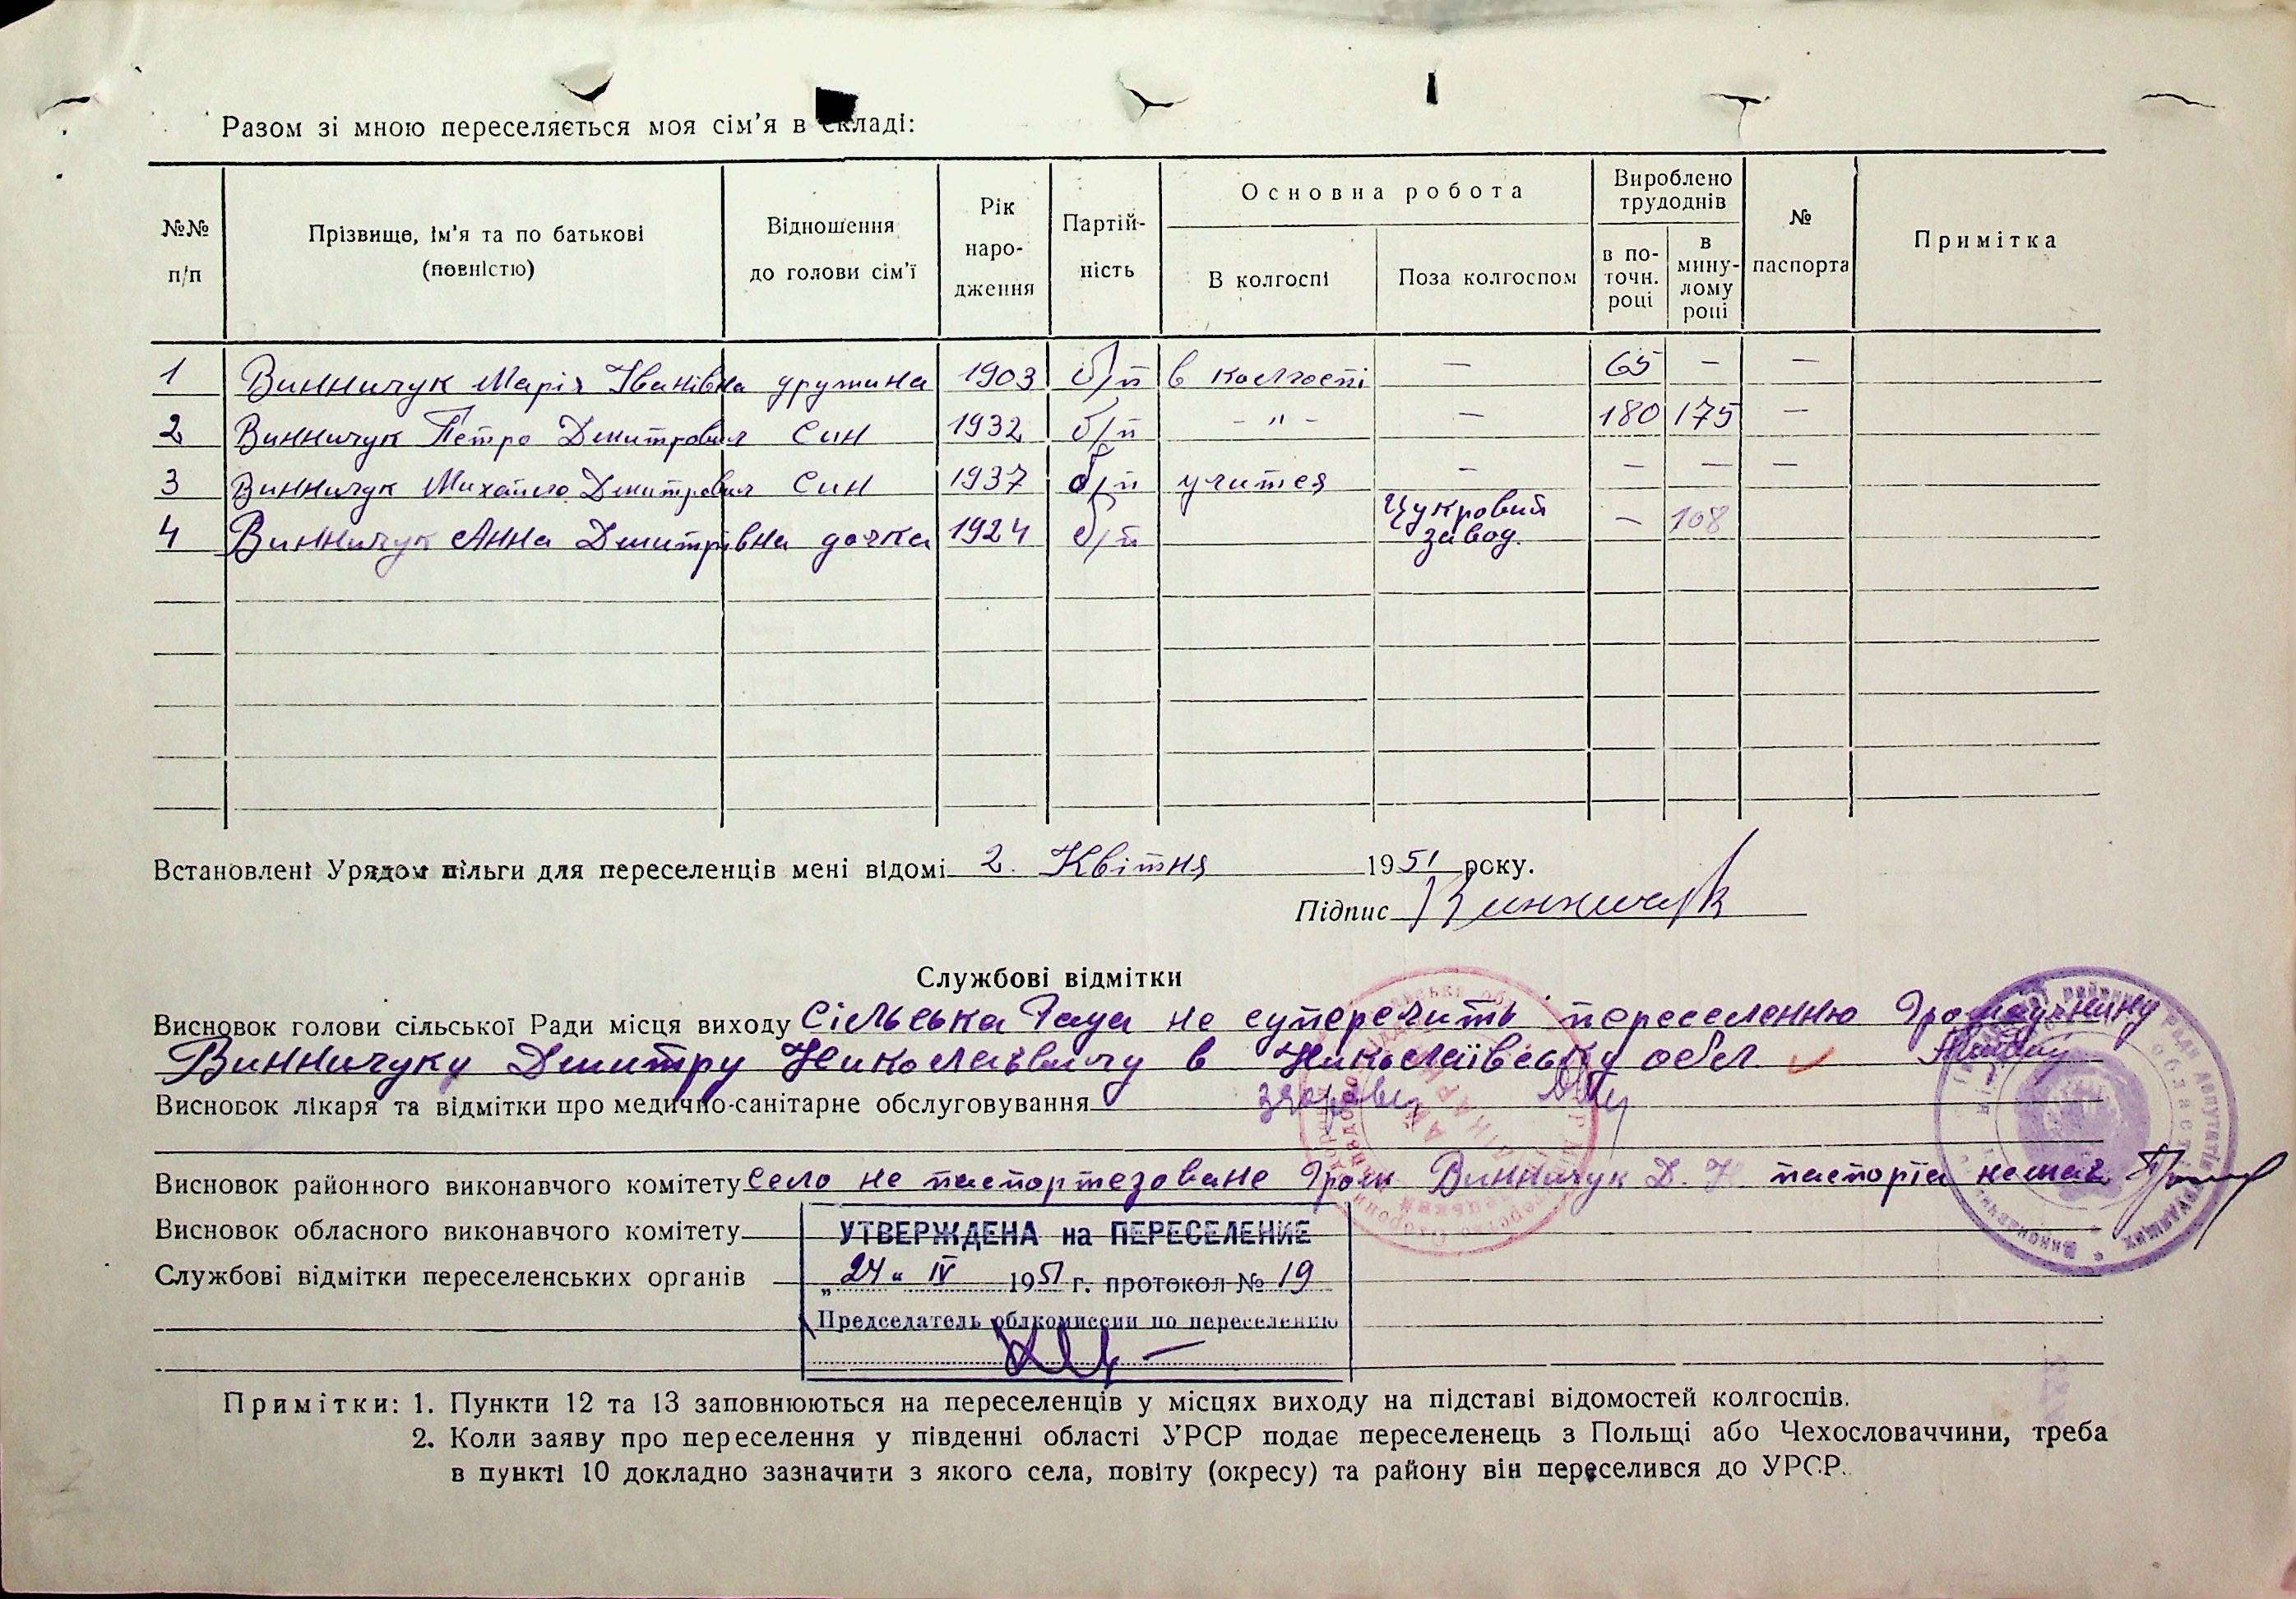 Разом зі мною переселяється моя сім'я в складі:
№№ п/п
Прізвище, ім'я та по батькові (повністю)
Відношення до голови сім'ї
Рік народження
Партійність
Основна робота
В колгоспі
Поза колгоспом
Вироблено трудоднів
в поточн. році
в минулому році
№ паспорта
Примітка
1 Винничук Марія Іванівна дружина 1903 б/п в колгоспі — 65 — —
2 Винничук Петро Дмитрович син 1932 б/п - " - — 180 175 —
3 Винничук Михайло Дмитрович син 1937 б/п учитея — — — —
4 Винничук Анна Дмитрівна дочка 1924 б/п Цукровий завод. — 108
Встановлені Урядом пільги для переселенців мені відомі 2. Квітня 1951 року.
Підпис Винничук
Службові відмітки
Висновок голови сільської Ради місця виходу Сільська Рада не суперечить переселенню Громадянину
Винничуку Дмитру Николаївичу в Николаївську обл.
Висновок лікаря та відмітки про медично-санітарне обслуговування
Висновок районного виконавчого комітету Село не паспортезоване Гром Винничук Д. Н паспорта немає
Висновок обласного виконавчого комітету
УТВЕРЖДЕНА на ПЕРЕСЕЛЕНИЕ
Службові відмітки переселенських органів
„24" IV 1951 г. протокол № 19
Председатель облкомиссии по переселению
Примітки: 1. Пункти 12 та 13 заповнюються на переселенців у місцях виходу на підставі відомостей колгоспів.
2. Коли заяву про переселення у південні області УРСР подає переселенець з Польщі або Чехословаччини, треба
в пункті 10 докладно зазначити з якого села, повіту (окресу) та району він переселився до УРСР.